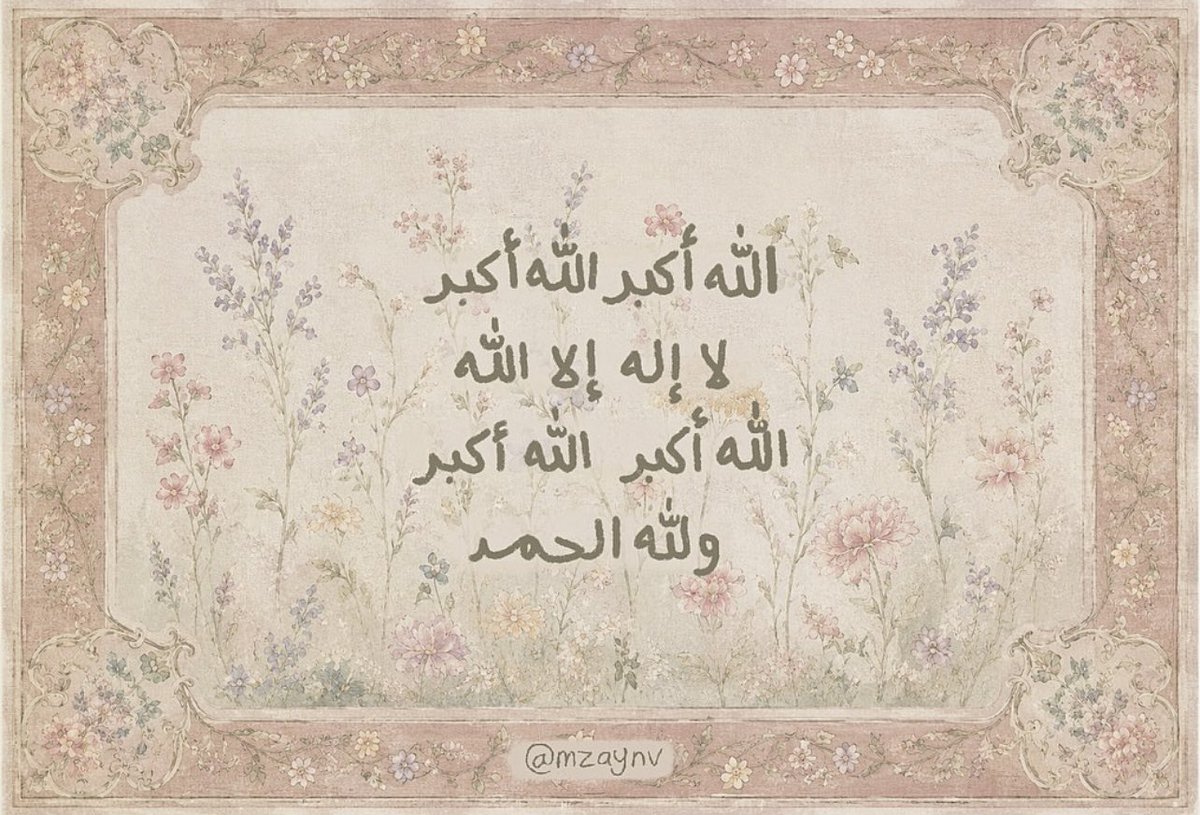 الله أكبر الله أكبر
لا إله إلا الله
الله أكبر الله أكبر
ولله الحمد
@mzaynv